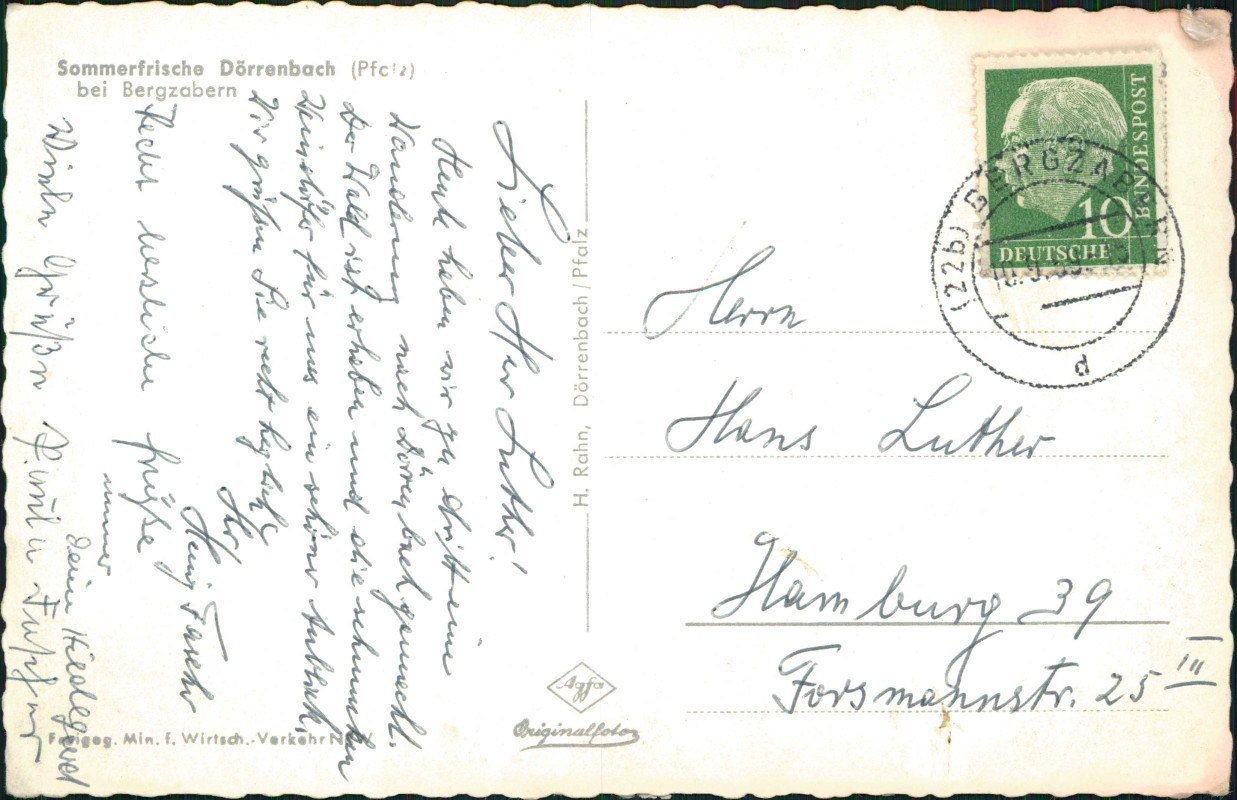 Sommerfrische Dörrenbach (Pfalz)
bei Bergzabern
Lieber Herr Luther!
Heute haben wir zu dritt eine
Wanderung nach Dörrenbach gemacht.
Der Wald ist erhaben und die schmucken
Weindörfer für uns ein schöner Anblick.
Wir grüßen Sie recht herzlich
Ihr
Heinz
Recht herzliche Grüße
immer
Deine Hildegard
Grüße
H. Rahn, Dörrenbach/Pfalz
Agfa
Originalfoto
Freigeg. Min. f. Wirtsch.-Verkehr NRW
DEUTSCHE
BUNDESPOST
10
(22b) BERGZABERN
d
Herrn
Hans Luther
Hamburg 39
Forsmannstr. 25 III